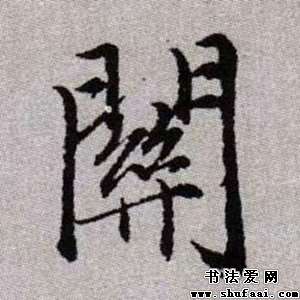 關
书法爱网
www.shufaai.com